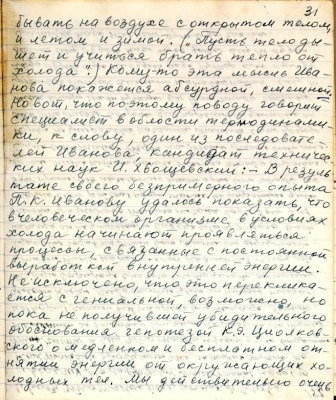 31
бывать на воздухе с открытом телом,
и летом и зимой. („Пусть тело ды-
шет и учиться брать тепло от
холода".) Кому-то эта мысль Ива-
нова покажется абсурдной, смешной.
Но вот, что по этому поводу говорит
специалист в области термодинами-
ки, к слову, один из последовате-
лей Иванова, кандидат техничес-
ких наук И. Хвощевский: – В резуль-
тате своего беспримерного опыта
П.К. Иванову удалось показать, что
в человеческом организме, в условиях
холода начинают проявляться
процессы, связанные с постоянной
выработкой внутренней энергии.
Не исключено, что это переклика-
ется с гениальной, возможно, но
пока не получившей убедительного
обоснования гепотезой К.Э. Циолков-
ского о медленном и бесплатном от-
нятии энергии от окружающих хо-
лодных тел. Мы действительно очень